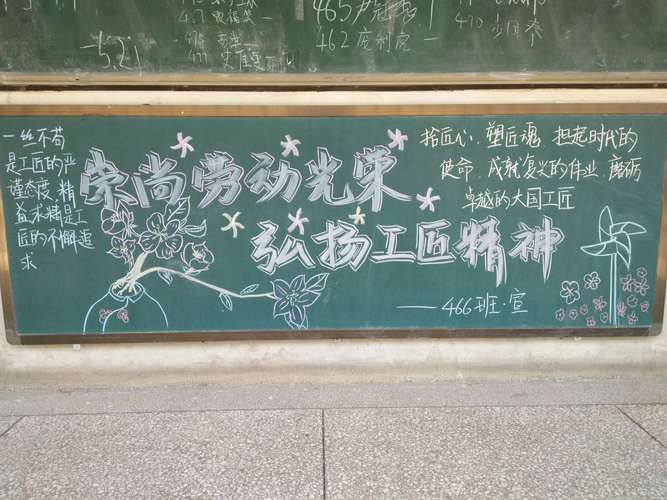 465
462 庞利宛一
470
一丝不苟
是工匠的严
谨态度,精
益求精是工
匠的不懈追
求
崇尚劳动光荣
弘扬工匠精神
拾匠心、塑匠魂,担起时代的
使命,成就复兴的伟业,磨砺
卓越的大国工匠
——466班·宣